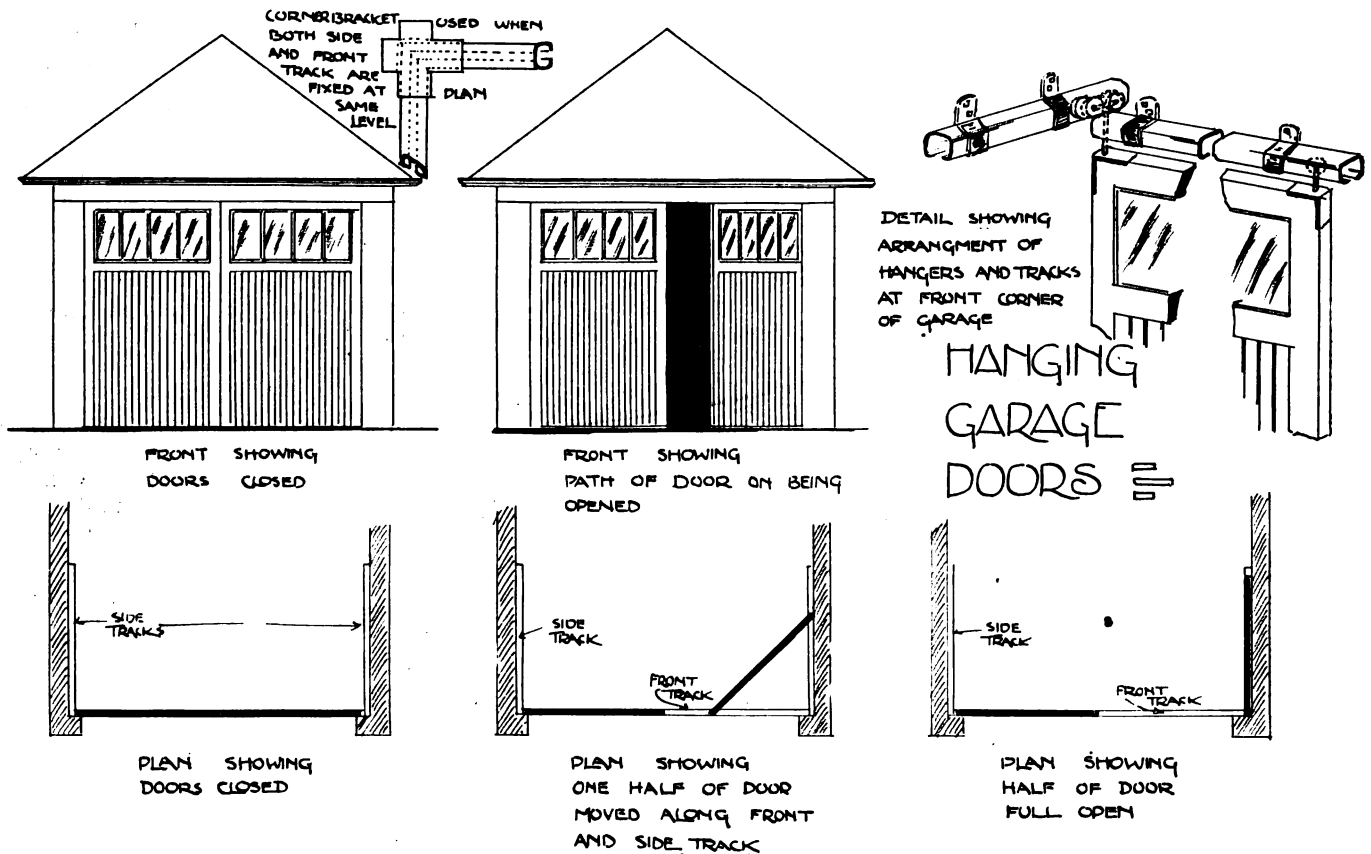 CORNER BRACKET USED WHEN
BOTH SIDE
AND FRONT
TRACK ARE
FIXED AT
SAME
LEVEL
PLAN
DETAIL SHOWING
ARRANGMENT OF
HANGERS AND TRACKS
AT FRONT CORNER
OF GARAGE
HANGING
GARAGE
DOORS
FRONT SHOWING
DOORS CLOSED
FRONT SHOWING
PATH OF DOOR ON BEING
OPENED
SIDE
TRACKS
SIDE
TRACK
FRONT
TRACK
SIDE
TRACK
FRONT
TRACK
PLAN SHOWING
DOORS CLOSED
PLAN SHOWING
ONE HALF OF DOOR
MOVED ALONG FRONT
AND SIDE TRACK
PLAN SHOWING
HALF OF DOOR
FULL OPEN